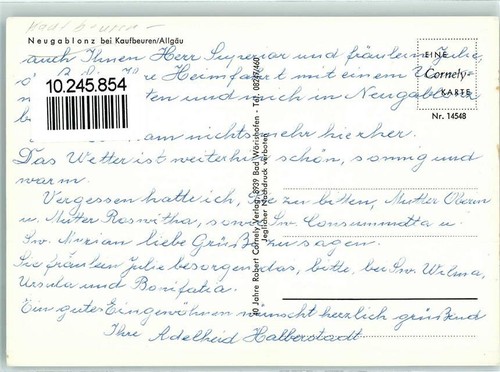 Kaufbeuren –
Neugablonz bei Kaufbeuren/Allgäu
EINE
Cornely-
KARTE
Nr. 14548
auch Ihnen Herr Superior und fräulein Julie,
Heimfahrt mit einem
10.245.854
ten und mich in Neugablonz
nichts mehr hierher.
Das Wetter ist weiterhin schön, sonnig und
warm.
Vergessen hatte ich, Sie zu bitten, Mutter Oberin
u. Mutter Roswitha, sowie Sw. Consummata u.
Sw. Mirian liebe Grüße zu sagen.
fräulein Julie besorgen das, bitte, bei Sw. Wilma,
Ursula und Bonifatia.
Ein gutes Eingewöhnen wünscht herzlich grüßend
Ihre Adelheid Halberstadt
40 Jahre Robert Cornely Verlag, 8939 Bad Wörishofen - Tel. 08247/460
Jeglicher Nachdruck verboten